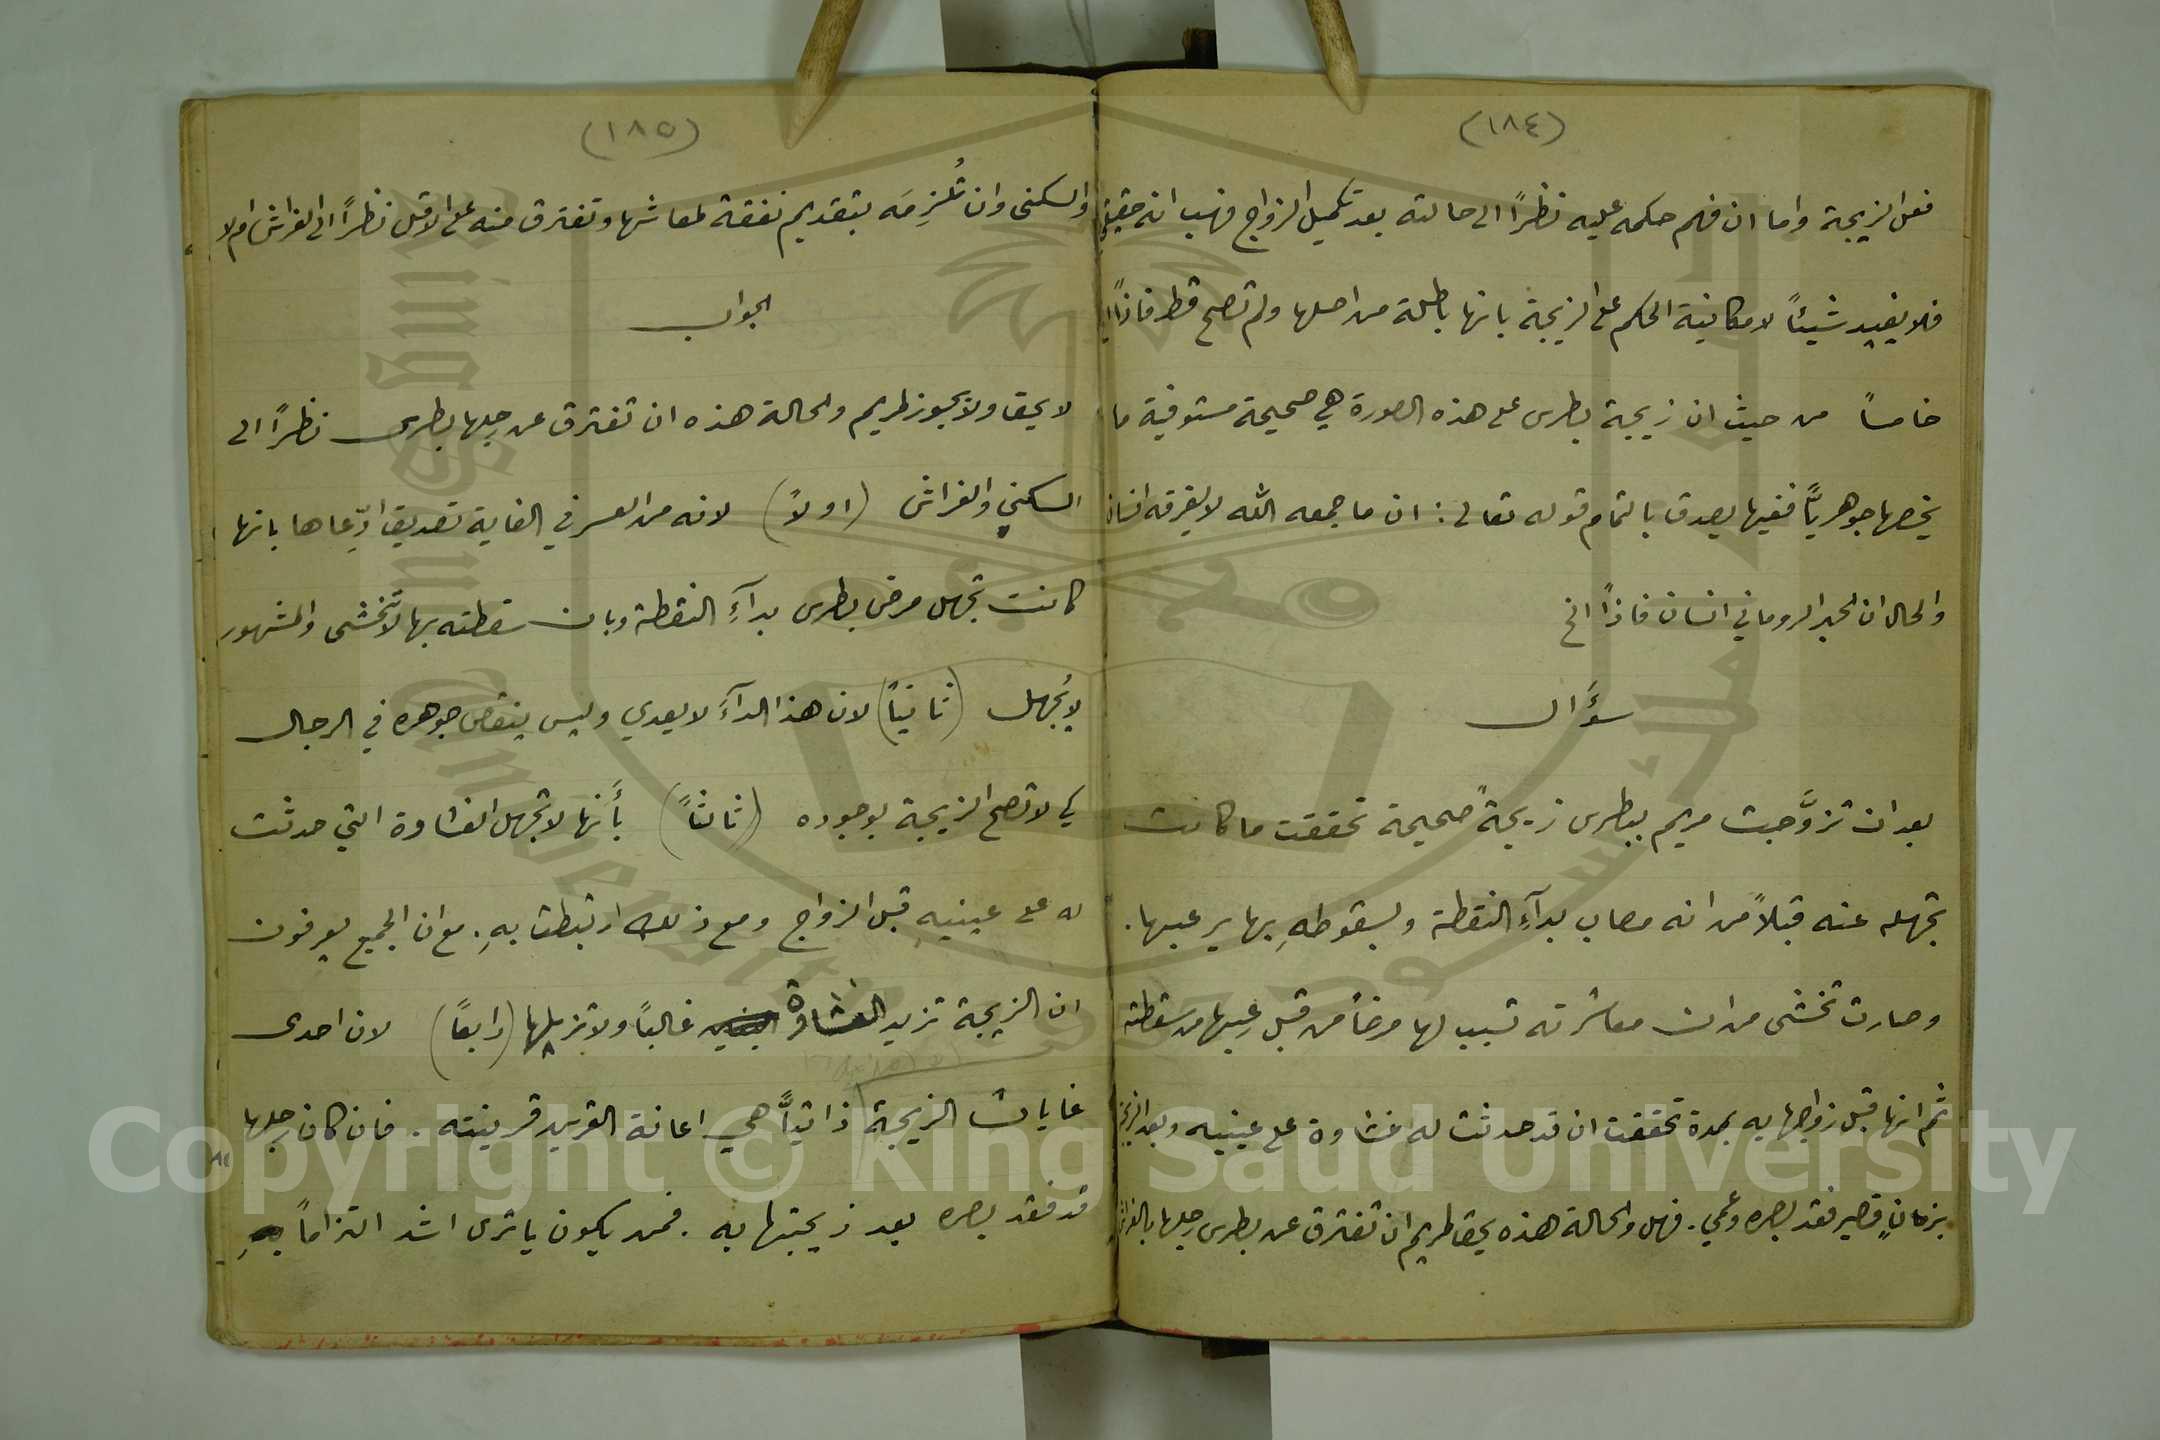 (١٨٤)
فعل الزيجة واما ان فهم حكمه عليه نظرًا الى حالته بعد تكميل الزواج فهب انه حقيقي
فلا يفيد شيئًا لامكانية الحكم على الزيجة بانها باطلة من اصلها ولم تصح قط فاذًا
خامسًا من حيث ان زيجة بطرس على هذه الصورة هي صحيحة مستوفية ما
يخصها جوهريًّا ففيها يصدق بالتمام قوله تعالى : ان ما جمعه الله لا يفرقه انسان
والحال ان الحبر الروماني انسان فاذًا الخ
سؤال
بعد ان تزوَّجت مريم ببطرس زيجةً صحيحة تحققت ما كانت
تجهله عنه قبلاً من انه مصاب بدآءِ النقطة وبسقوطهِ بها يرعبها .
وصارت تخشى من ان معاشرته تسبب لها مرضًا من قبل رعبها من سقطته
ثم انها قبل زواجها به بمدة تحققت ان قد حدثت له غشاوة على عينيه وبعد الزيجة
بزمانٍ قصير فقد بصره وعمي . فهل والحالة هذه يحق لمريم ان تفترق عن بطرس رجلها بالفراش
(١٨٥)
والسكنى وان تُلزِمَه بتقديم نفقة لمعاشها وتفترق منه على الاقل نظرًا الى الفراش ام لا
الجواب
لا يحق ولا يجوز لمريم والحالة هذه ان تفترق عن رجلها بطرس نظرًا الى
السكنى والفراش (اولاً) لانه من العسر في الغاية تصديق ادّعاها بانها
كانت تجهل مرض بطرس بدآءِ النقطة وبان سقطته بها لا تخشى والمشهور
لا يُجهل (ثانيًا) لان هذا الدآءَ لا يعدي وليس ينقص جوهره في الرجال
كي لا تصح الزيجة بوجوده (ثالثًا) بأنها لا تجهل الغشاوة التي حدثت
له على عينيهِ قبل الزواج ومع ذلك ارتبطت بهِ . مع ان الجميع يعرفون
ان الزيجة تزيد الغشاوة غالبًا ولا تزيلها (رابعًا) لان احدى
غايات الزيجة ذاتيًّا هي اعانة القرين قرينته . فان كان رجلها
قد فقد بصره بعد زيجتها به . فمن يكون يا ترى اشد التزامًا
Copyright © King Saud University